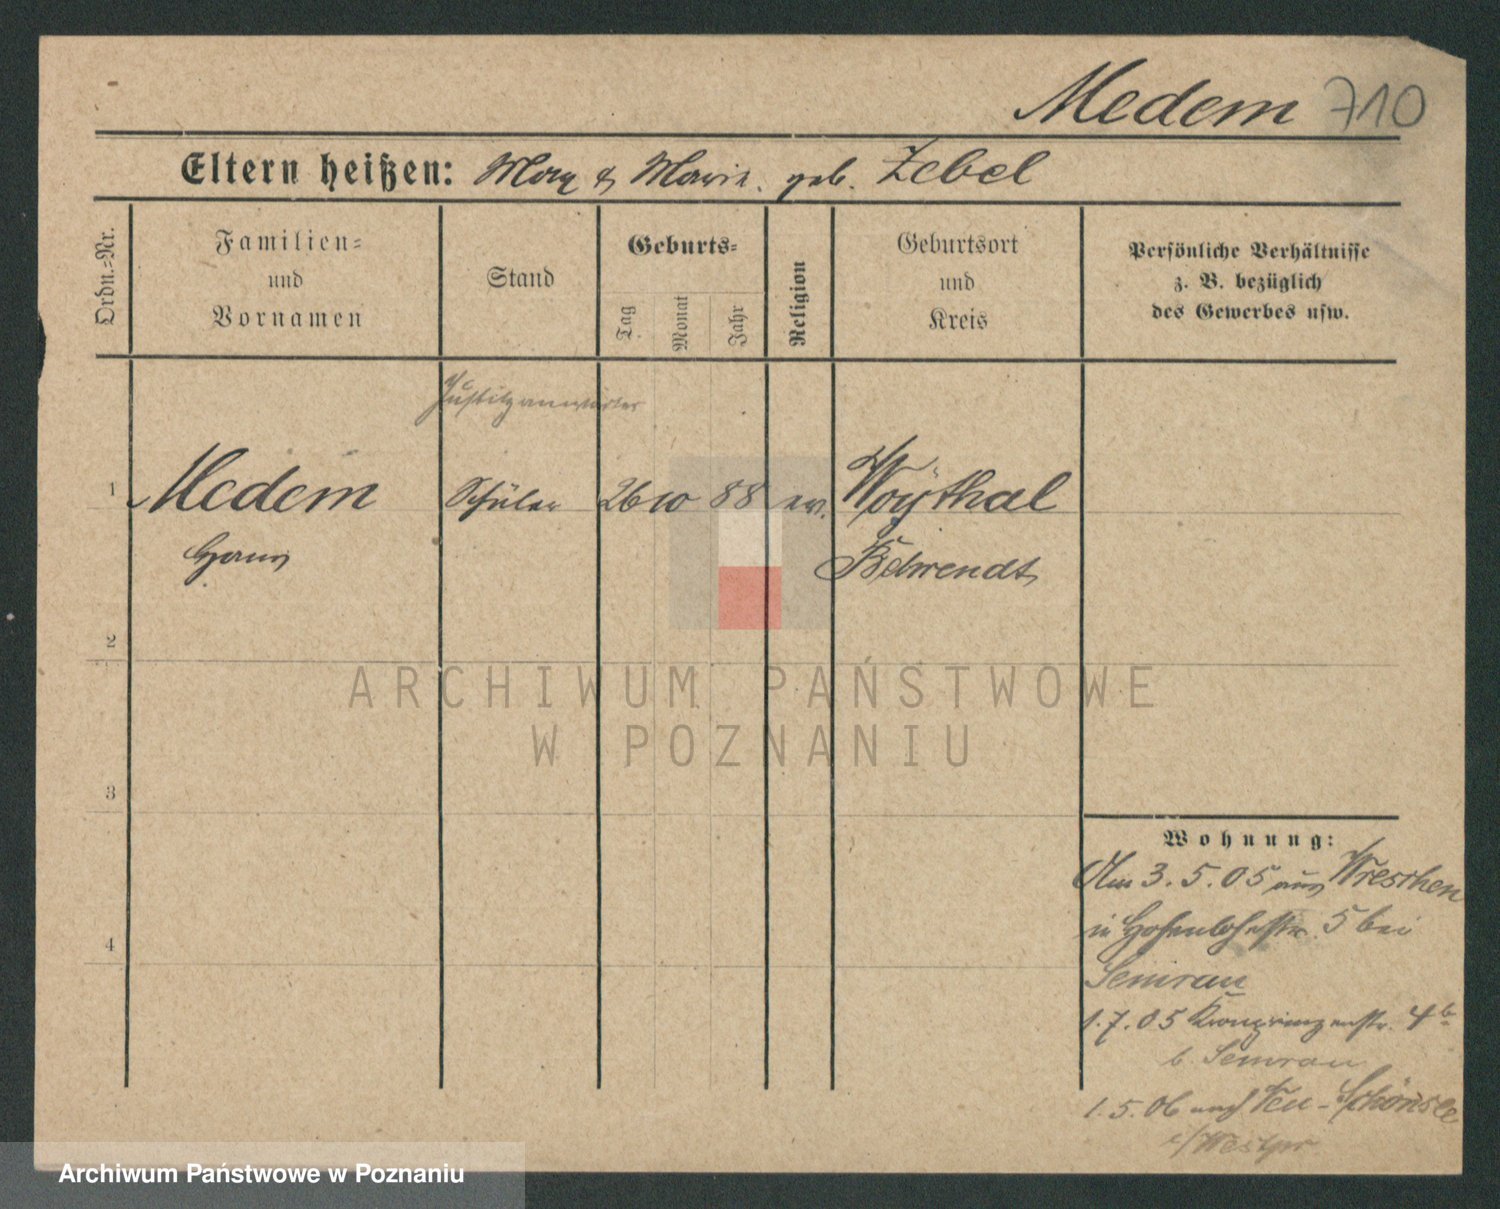 Medem 710
Eltern heißen: Max & Marie. geb. Zebel
Ordn.=Nr.
Familien=
und
Vornamen
Stand
Geburts=
Tag
Monat
Jahr
Religion
Geburtsort
und
Kreis
Persönliche Verhältnisse
z. B. bezüglich
des Gewerbes usw.
Justizanwärter
1 Medem Schüler 26 10 88 ev. Woythal
Hans Behrendt
2
3
4
Wohnung:
Am 3.5.05 aus Wreschen
in Hohenlohestr. 5 bei
Semrau
1.7.05 Kronprinzenstr. 4b
b. Semrau
1.5.06 nach Neu-Schönsee
i/Westpr.
ARCHIWUM PAŃSTWOWE
W POZNANIU
Archiwum Państwowe w Poznaniu